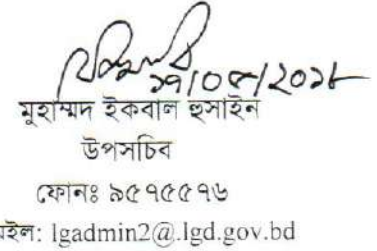 ১৭/০৫/২০১৮
মুহাম্মদ ইকবাল হুসাইন
উপসচিব
ফোনঃ ৯৫৭৫৫৭৬
মইল: lgadmin2@.lgd.gov.bd